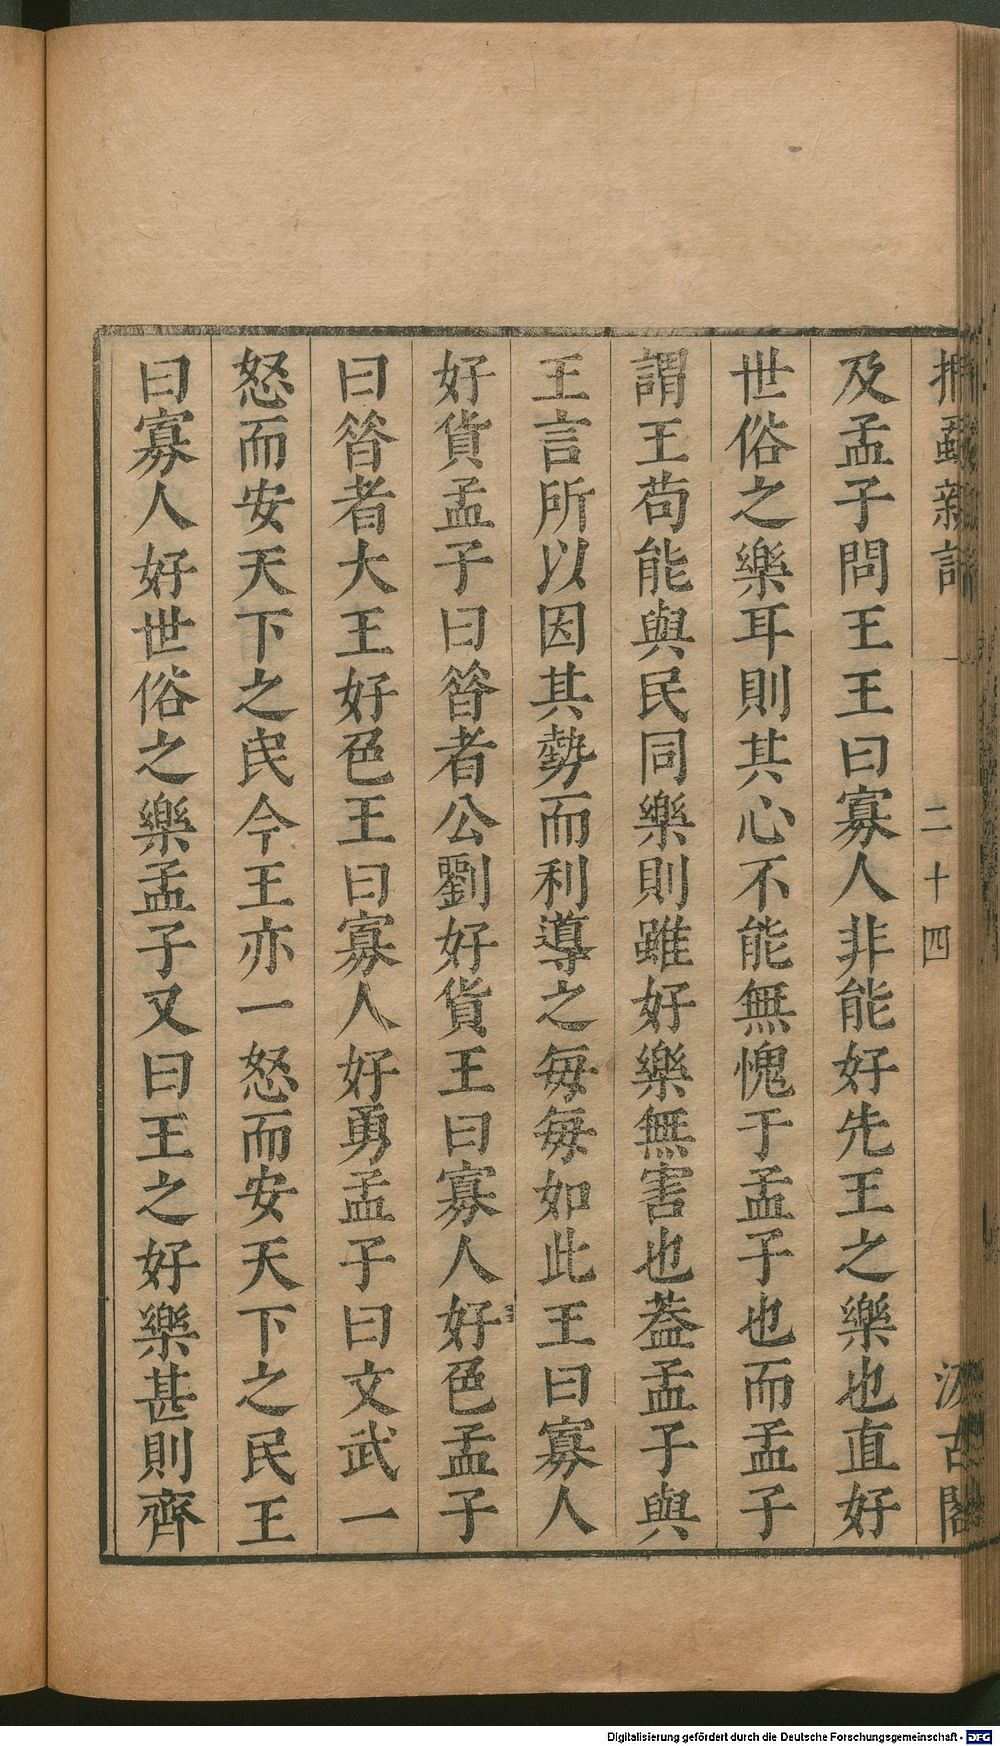 捫蝨新話 一 二十四 汲古閣
及孟子問王王曰寡人非能好先王之樂也直好
世俗之樂耳則其心不能無愧于孟子也而孟子
謂王苟能與民同樂則雖好樂無害也葢孟子與
王言所以因其勢而利導之每每如此王曰寡人
好貨孟子曰昝者公劉好貨王曰寡人好色孟子
曰昝者大王好色王曰寡人好勇孟子曰文武一
怒而安天下之民今王亦一怒而安天下之民王
曰寡人好世俗之樂孟子又曰王之好樂甚則齊
Digitalisierung gefördert durch die Deutsche Forschungsgemeinschaft - DFG